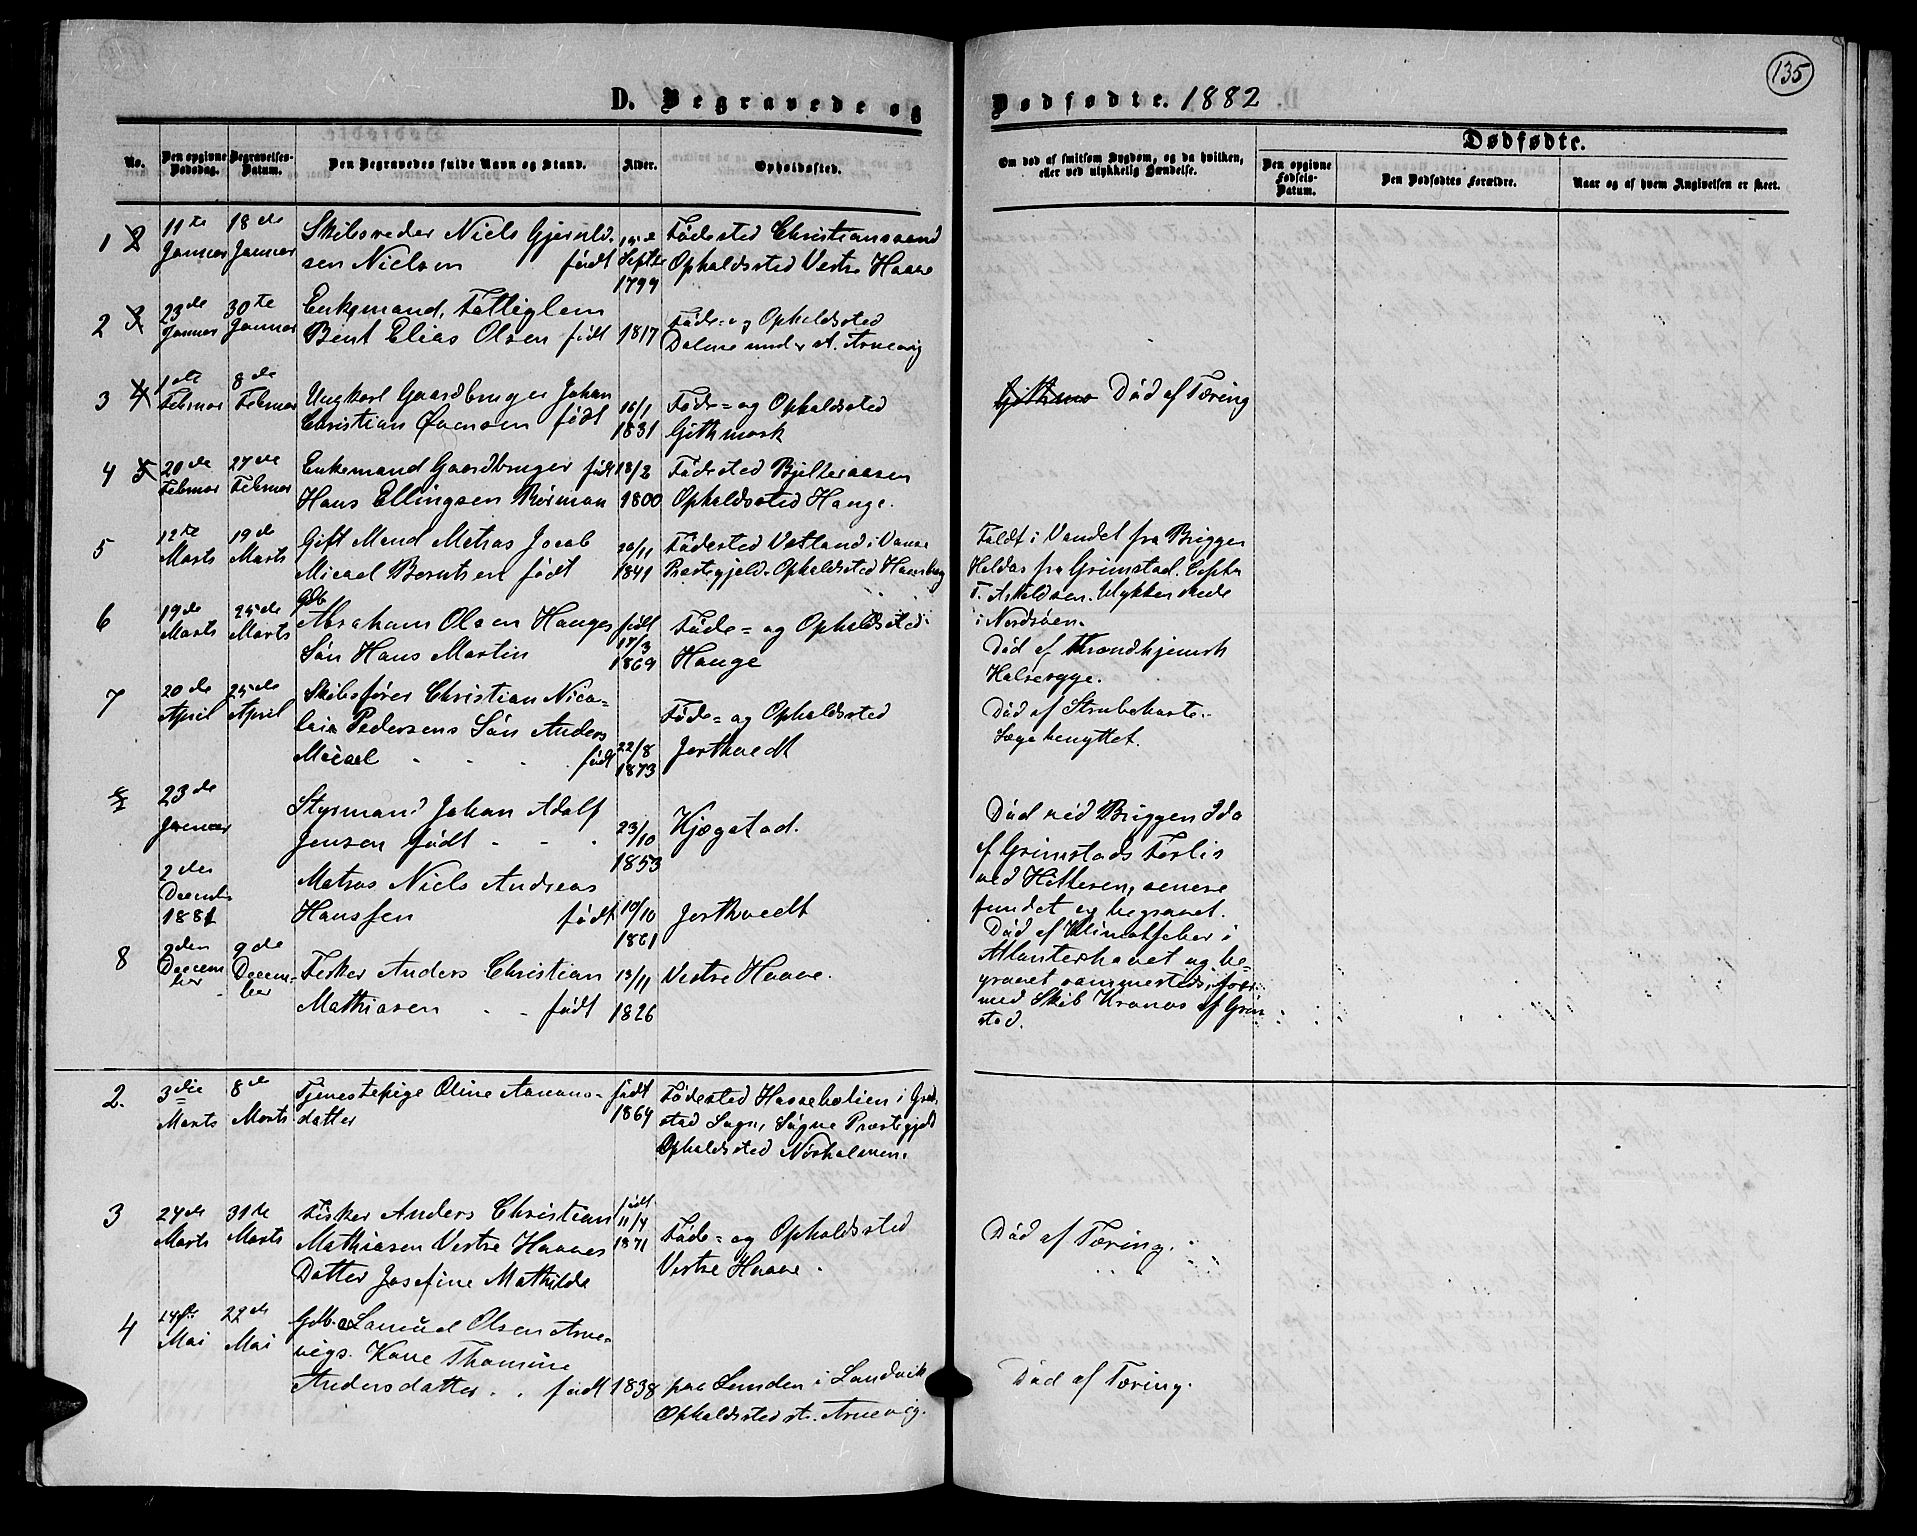 135
D. Begravede og Dødfødte. 1882
Dødfødte.
No.
Den opgivne Dødsdag.
Begravelses-Datum.
Den Begravedes fulde Navn og Stand.
Alder.
Opholdssted.
Om død af smitsom Sygdom, og da hvilken,
eller ved ulykkelig Hændelse.
Den opgivne Fødsels-Datum.
Den Dødfødtes Forældre.
Naar og af hvem Angivelsen er skeet.
1 2 11te Januar 18de Januar
Skibsreder Niels Gjeruld-
sen Nielsen født
Septbr 1799
Fødested Christianssand
Opholdssted Vestre Haave
2 3 23de Januar 30te Januar
Enkemand, Fattiglem
Bent Elias Olsen født 1817
Føde- og Opholdssted
Dalene under st. Arnevig
3 4 1ste Februar 8de Februar
Ungkarl Gaardbruger Johan
Christian Øvensen født
16/1 1831
Føde- og Opholdssted
Githmark
Død af Tæring
4 5 20de Februar 27de Februar
Enkemand Gaardbruger født 18/2
Hans Ellingsen Rørman 1800
Fødested Bjelteraasen
Opholdssted Hauge.
5 12te Marts 19de Marts
Gift Mand Matros Jacob
Micael Berntsen født
20/11 1841
Fødested Vatland i Vanse
Præstegjeld. Opholdssted Hamberg
Faldt i Vandet fra Briggen
Heldas fra Grimstad. Capt.
T. Askildsen. Ulykken skede
i Nordsøen.
6 19de Marts 25de Marts
Gdb.
Abraham Olsen Hauges
Søn Hans Martin
født 17/3 1869
Føde- og Opholdssted
Hauge
Død af throndhjemsk
Halsesyge.
7 20de April 25de April
Skibsfører Christian Nico-
lai Pedersens Søn Anders
Micael født
22/8 1873
Føde- og Opholdssted
Jortveedt
Død af Strubehoste.
Læge benyttet.
23de Januar
Styrmand Johan Adolf
Jensen født
23/10 1853
Kjægstad.
Død ved Briggen Ida
af Grimstads Forlis
ved Hitteren, senere
fundet og begravet.
2den Decembr 1881
Matros Niels Andreas
Hanssen født
10/10 1861
Jortveedt
Død af Klimatfeber i
Atlanterhavet og be-
gravet sammesteds, for
med Skib Kronos af Grim-
stad.
8 2den December 9de December
Fisker Anders Christian
Mathiasen født
13/11 1826
Vestre Haave.
2. 3die Marts 8de Marts
Tjenestepige Oline Aanons-
datter
født 1864
Fødested Haaseholien i Grei-
stad Sogn, Søgne Præstegjeld
Opholdssted Nørholmen.
3 24de Marts 31te Marts
Fisker Anders Christian
Mathiasen Vestre Haaves
Datter Josefine Mathilde
født 11/4 1871
Føde- og Opholdssted
Vestre Haave.
Død af Tæring.
4 14de Mai 22de Mai
Gdb. Samuel Olsen Arne-
vigs Kone Thomine
Andersdatter født 1838
paa Lunden i Landvik
Opholdssted st. Arnevig.
Død af Tæring.